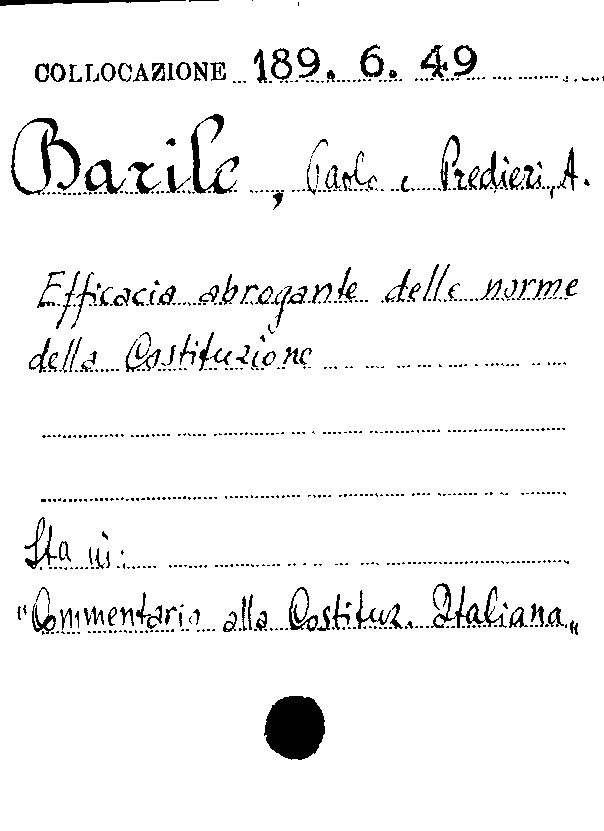 COLLOCAZIONE 189. 6. 49
Barile, Paolo e Predieri, A.
Efficacia abrogante delle norme
della Costituzione
Sta in:
"Commentario alla Costituz. Italiana"